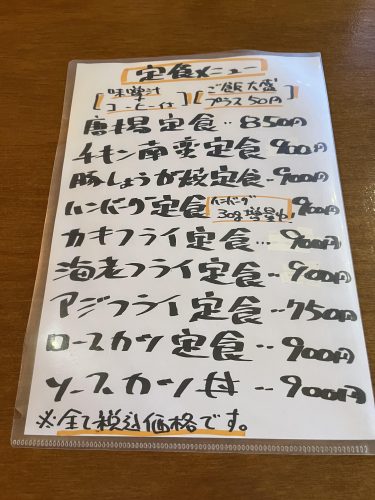 定食メニュー
[味噌汁 コーヒー付] [ご飯大盛 プラス50円]
唐揚定食‥850円
チキン南蛮定食 900円
豚しょうが焼定食‥900円
ハンバーグ定食 ハンバーグ30g増量中! 900円
カキフライ定食‥900円
海老フライ定食‥900円
アジフライ定食‥750円
ロースカツ定食‥900円
ソースカツ丼‥900円
※全て税込価格です。